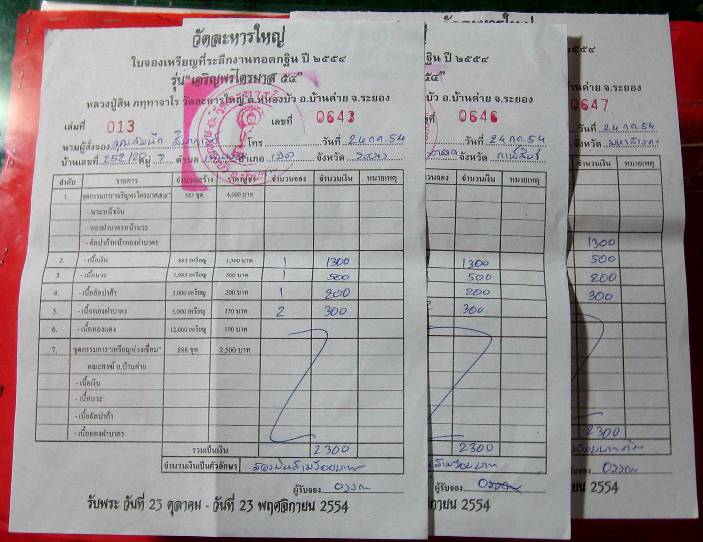 วัดละหารใหญ่
ใบจองเหรียญที่ระลึกงานทอดกฐิน ปี ๒๕๕๔
รุ่น"เจริญพรไตรมาส ๕๔"
หลวงปู่สิน ภทฺทาจาโร วัดละหารใหญ่ ต.หนองบัว อ.บ้านค่าย จ.ระยอง
เล่มที่ 013 เลขที่ 0643
นามผู้สั่งจอง โทร วันที่ 24 กค 54
บ้านเลขที่ หมู่ 7 ตำบล อำเภอ เมือง จังหวัด ระยอง
ลำดับ รายการ จำนวนสร้าง ราคาชุด จำนวนจอง จำนวนเงิน หมายเหตุ
1. 383 ชุด 4,900 บาท
- นวะหน้าเงิน
- ทองฝาบาตรหน้านวะ
- อัลปาก้าหน้าทองฝาบาตร
2. - เนื้อเงิน 883 เหรียญ 1,300 บาท 1 1300
3. - เนื้อนวะ 1,983 เหรียญ 500 บาท 1 500
4. - เนื้ออัลปาก้า 3,000 เหรียญ 200 บาท 1 200
5. - เนื้อทองฝาบาตร 5,000 เหรียญ 150 บาท 2 300
6. - เนื้อทองแดง 12,000 เหรียญ 100 บาท
7. ชุดกรรมการ"เหรียญห่วงเชื่อม" 888 ชุด 2,500 บาท
คณะสงฆ์ อ.บ้านค่าย
- เนื้อเงิน
- เนื้อนวะ
- เนื้ออัลปาก้า
- เนื้อทองฝาบาตร
รวมเป็นเงิน 2300
จำนวนเงินเป็นตัวอักษร สองพันสามร้อยบาท
ผู้รับจอง อวรณ
รับพระ วันที่ 23 ตุลาคม - วันที่ 23 พฤศจิกายน 2554
กฐิน ปี ๒๕๕๔
๕๔"
หนองบัว อ.บ้านค่าย จ.ระยอง
เลขที่ 0646
วันที่ 24 กค 54
จังหวัด กาฬสินธุ์
จำนวนเงิน หมายเหตุ
1300
500
200
300
2300
สามร้อยบาท
ผู้รับจอง อวรณ
พฤศจิกายน 2554
วัดละหารใหญ่
ปี ๒๕๕๔
อ.บ้านค่าย จ.ระยอง
0647
วันที่ 24 กค 54
จังหวัด
จำนวนเงิน หมายเหตุ
1300
500
200
300
2300
อวรณ
ยน 2554